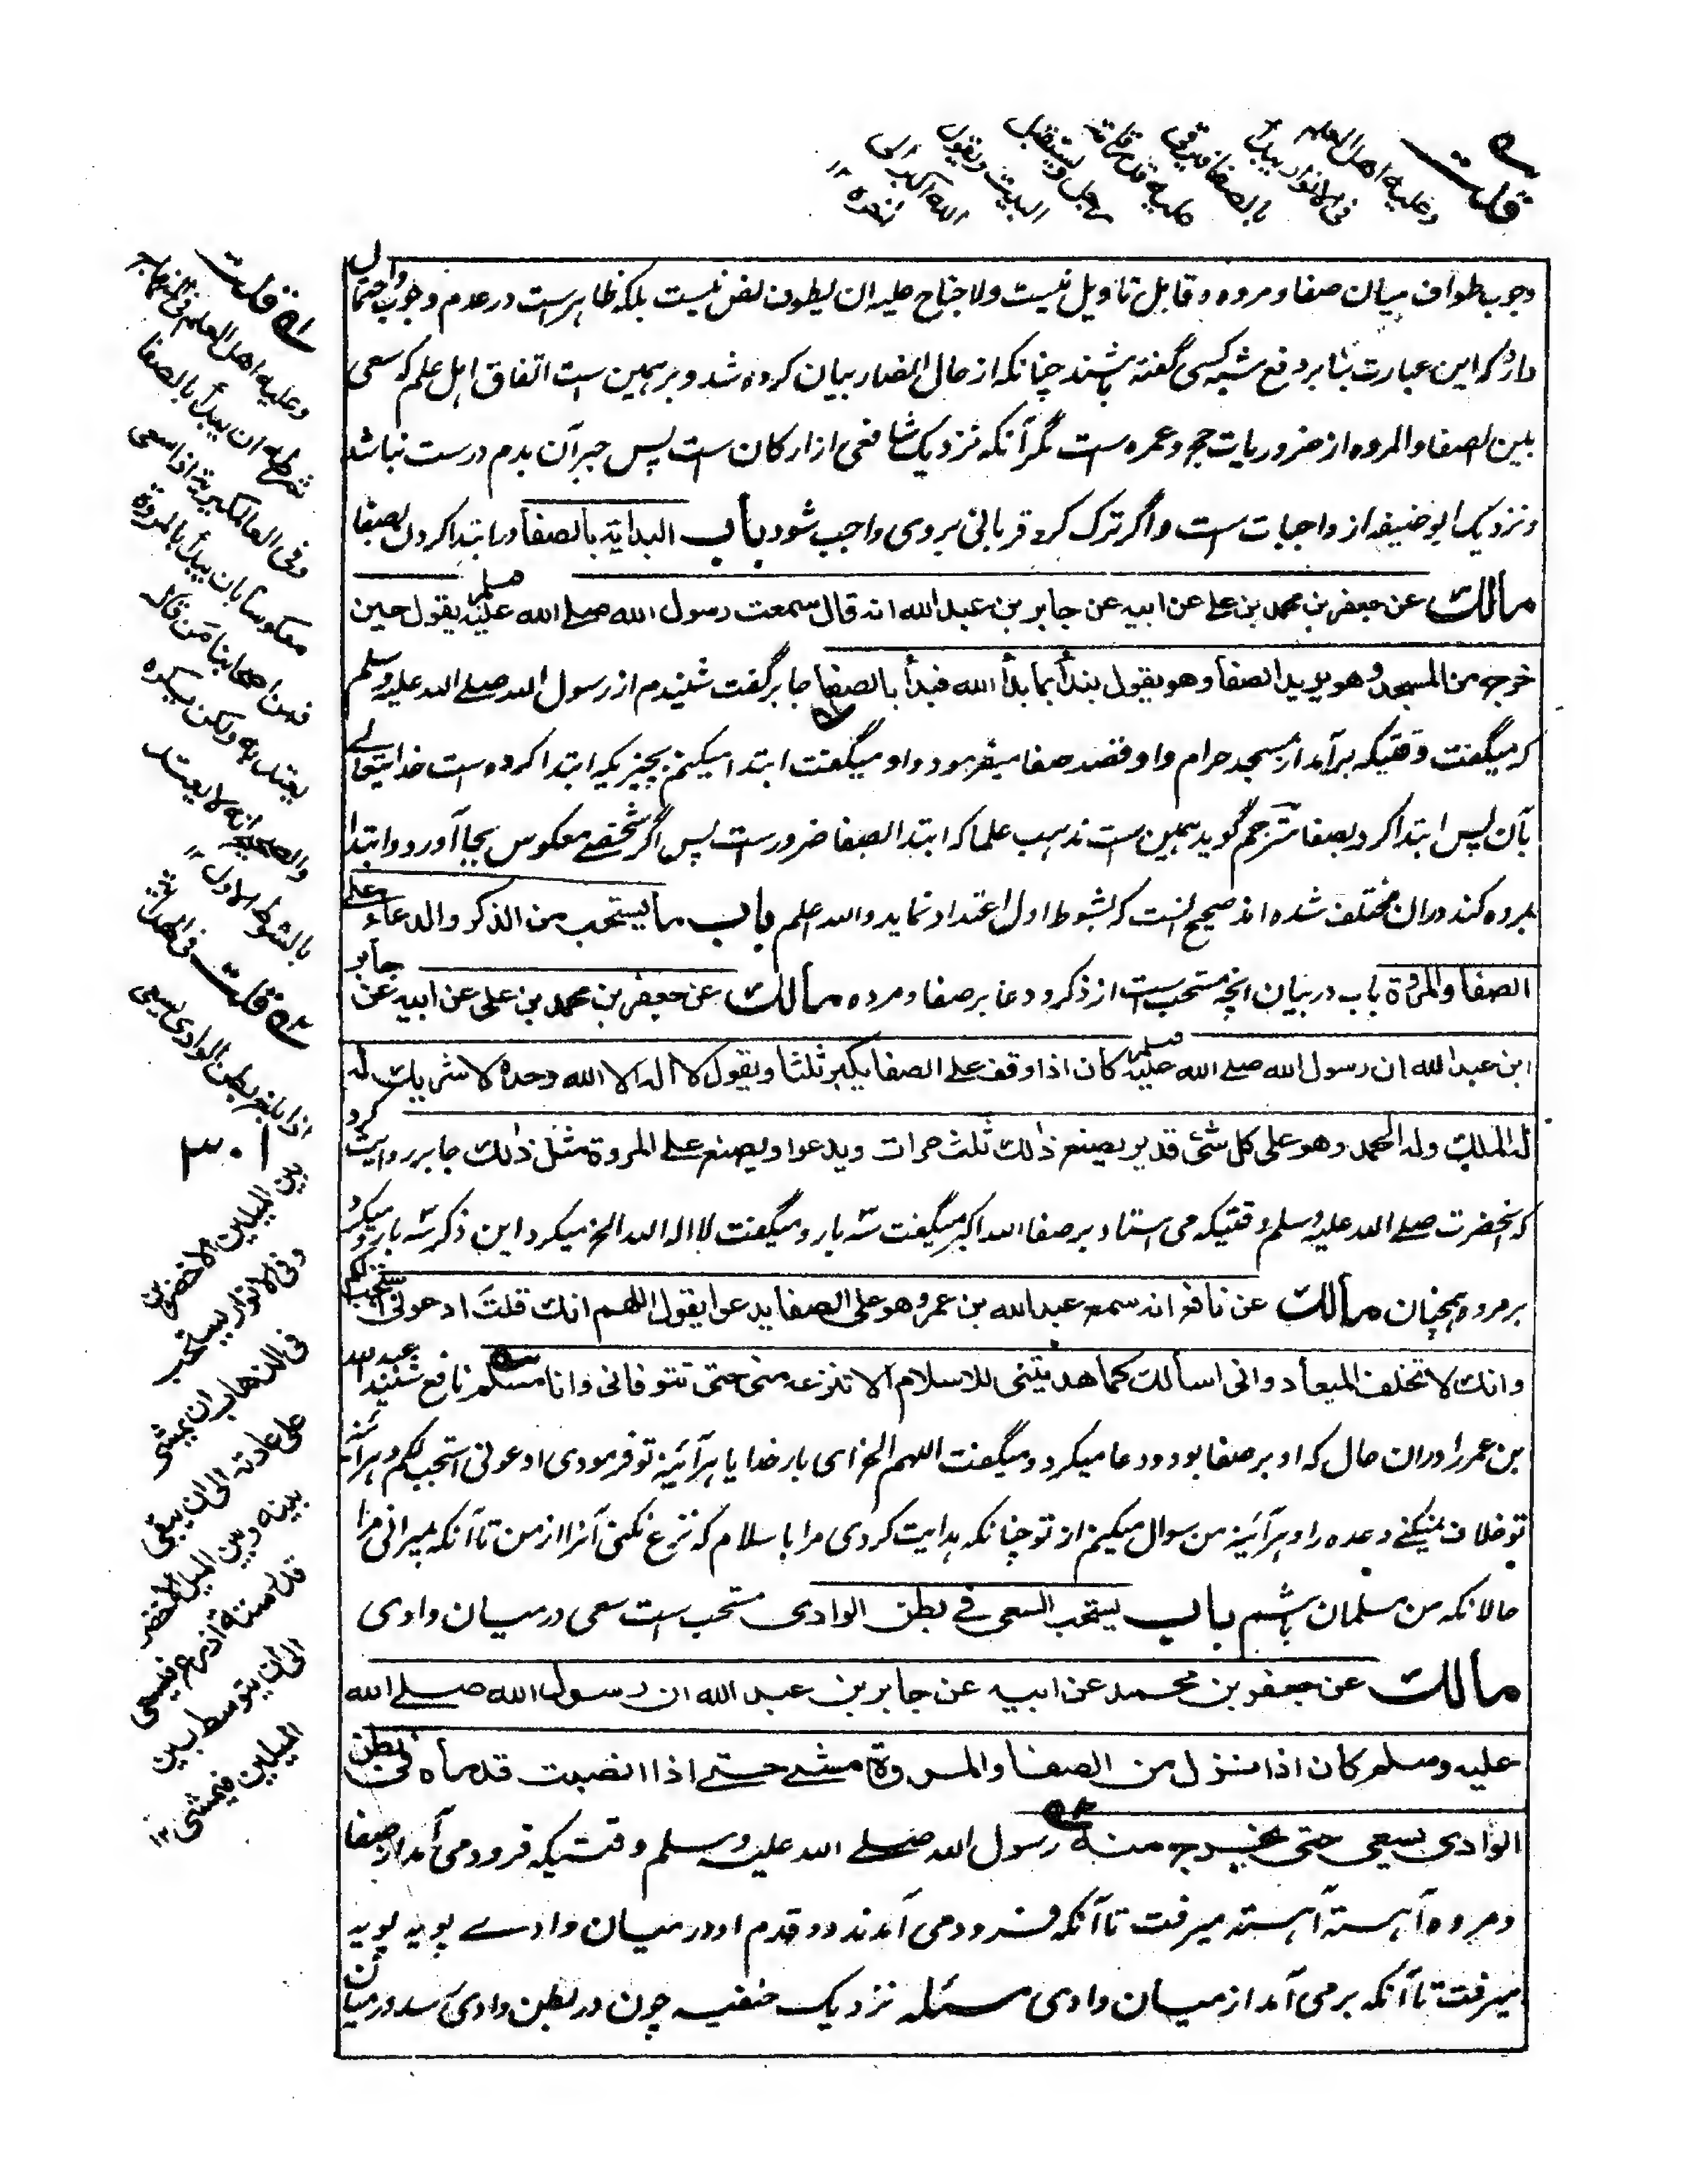 قلت
وعليه اهل العلم
فى الانوار يبدأ
بالصفا فيرقى
عليه قدر قامة
رجل ويستقبل
البيت ويقول
الله اكبر الى
آخره ١٢
وجوب طواف میان صفا و مروه و قابل تاویل نیست ولا جناح علیه ان یطوف نص نیست بلکه ظاهرست در عدم وجوب و احتمال
دارد که این عبارت بنا بر دفع شبه کسی گفته باشند چنانکه از حال انصار بیان کرده شد و بر همین ست اتفاق اهل علم که سعی
بین الصفا والمروه از ضروریات حج و عمره است مگر آنکه نزدیک شافعی از ارکان ست پس جبر آن بدم درست نباشد
و نزدیک ابو حنیفه از واجبات ست و اگر ترک کرد قربانی بروی واجب شود باب البداية بالصفا در ابتدا کردن بصفا
مالك عن جعفر بن محمد بن علي عن ابيه عن جابر بن عبد الله انه قال سمعت رسول الله صلے الله عليه وسلم يقول حين
خرج من المسجد وهو يريد الصفا وهو يقول نبدأ بما بدأ الله فبدأ بالصفا جابر گفت شنیدم از رسول الله صلے الله علیه وسلم
که میگفت وقتیکه برآمد از مسجد حرام و او قصد صفا میفرمود و او میگفت ابتدا میکنم بچیزیکه ابتدا کرده ست خدایتعالے
بآن پس ابتدا کرد بصفا مترجم گوید همین ست مذهب علما که ابتدا بصفا ضرورست پس اگر شخصے معکوس بجا آورد و ابتدا
بمروه کند دران مختلف شده اند صحیح آنست که بشوط اول اعتداد نماید والله اعلم باب ما يستحب من الذكر والدعاء على
الصفا والمروة باب در بیان آنچه مستحب ست از ذکر و دعا بر صفا و مروه مالك عن جعفر بن محمد بن علي عن ابيه عن جابر
ابن عبد الله ان رسول الله صلے الله عليه وسلم كان اذا وقف على الصفا يكبر ثلثا ويقول لا اله الا الله وحده لا شريك له
له الملك وله الحمد وهو على كل شئ قدير يصنع ذلك ثلث مرات ويدعوا ويصنع على المروة مثل ذلك جابر روایت کرد
که آنحضرت صلے الله علیه وسلم وقتیکه می استاد بر صفا الله اکبر میگفت سه بار و میگفت لا اله الا الله الخ میکرد این ذکر سه بار و میکرد
بر مروه همچنان مالك عن نافع انه سمع عبد الله بن عمر وهو على الصفا يدعو يقول اللهم انك قلت ادعونى استجب لكم
وانك لا تخلف الميعاد وانى اسألك كما هديتنى للاسلام الا تنزعه منى حتى تتوفانى وانا مسلم نافع شنید عبد الله
بن عمر را دران حال که او بر صفا بود و دعا میکرد و میگفت اللهم الخ ای بار خدایا هر آئینه تو فرمودی ادعونی استجب لکم و هر آئینه
تو خلاف نمیکنے وعده را و هر آئینه من سوال میکنم از تو چنانکه هدایت کردی مرا باسلام که نزع نکنی آنرا از من تا آنکه بمیرانی مرا
حالانکه من مسلمان باشم باب يستحب السعى فى بطن الوادى مستحب ست سعی در میان وادی
مالك عن جعفر بن محمد عن ابيه عن جابر بن عبد الله ان رسول الله صلے الله
عليه وسلم كان اذا نزل من الصفا والمروة مشى حتى اذا انصبت قدماه فى بطن
الوادى يسعى حتى يخرج منه رسول الله صلے الله علیه وسلم وقتیکه فرود می آمد از صفا
و مروه آهسته آهسته میرفت تا آنکه فرود می آمدند دو قدم او در میان وادے پویه پویه
میرفت تا آنکه بر می آمد از میان وادی مسئله نزدیک حنفیه چون در بطن وادی رسد در میان آن
قلت
وعليه اهل العلم فى المنهاج
شرطه ان يبدأ بالصفا
وفى العالمكيرية اذا سعى
معكوسا بان يبدأ بالمروة
فمن اصحابنا من قال
يعتد به ولكن يكره
والصحيح انه لا يعتد
بالشوط الاول ١٢
قلت فى الهداية
اذا بلغ بطن الوادى يسعى
٣٠١
بين الميلين الاخضرين
وفى الانوار يستحب
فى الذهاب ان يمشى
على عادته الى ان يبقى
بينه وبين الميل الاخضر
قدر ستة اذرع فيسعى
الى ان يتوسط بين
الميلين فيمشى ١٢